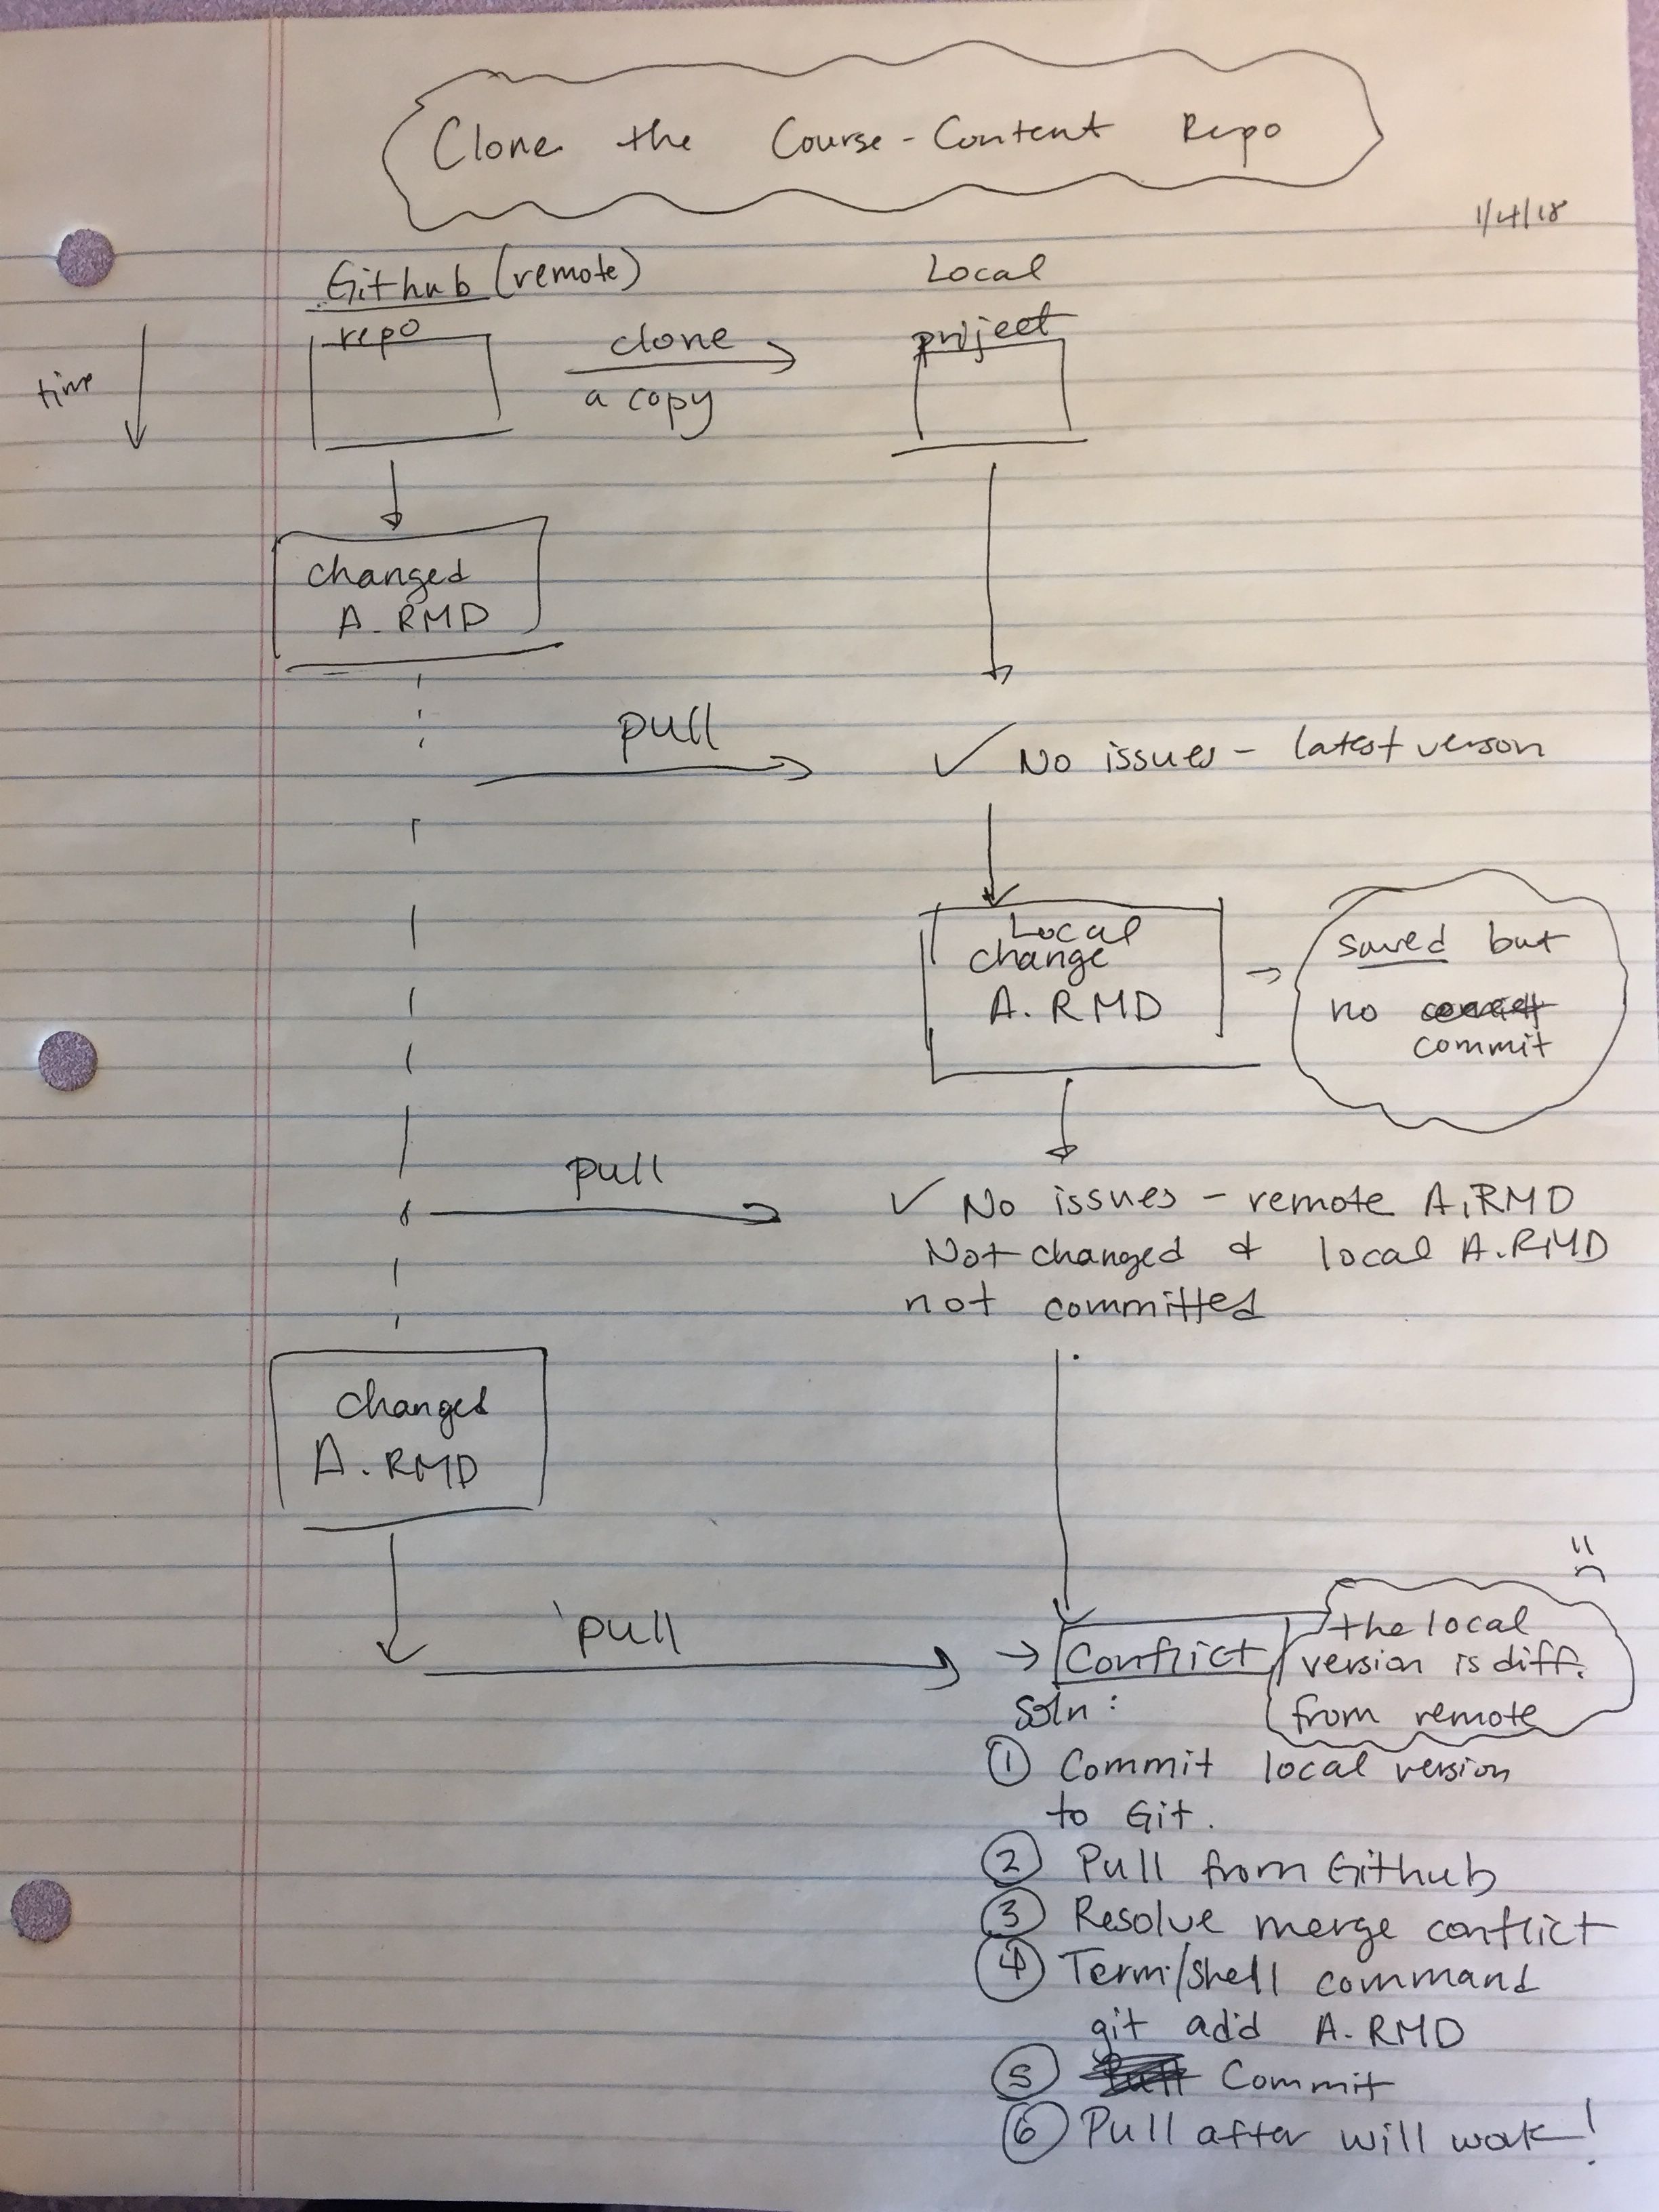 Clone the Course-Content Repo
1/4/18
Github (remote)
Local
repo
project
time
clone
a copy
changed
A.RMD
pull
✓ No issues - latest verson
Local
change
A.RMD
saved but
no
commit
pull
✓ No issues - remote A.RMD
Not changed & local A.RMD
not committed
changed
A.RMD
pull
→ Conflict
the local
version is diff.
from remote
Soln:
① Commit local version
to Git.
② Pull from Github
③ Resolve merge conflict
④ Term/shell command
git add A.RMD
⑤ Commit
⑥ Pull after will work!